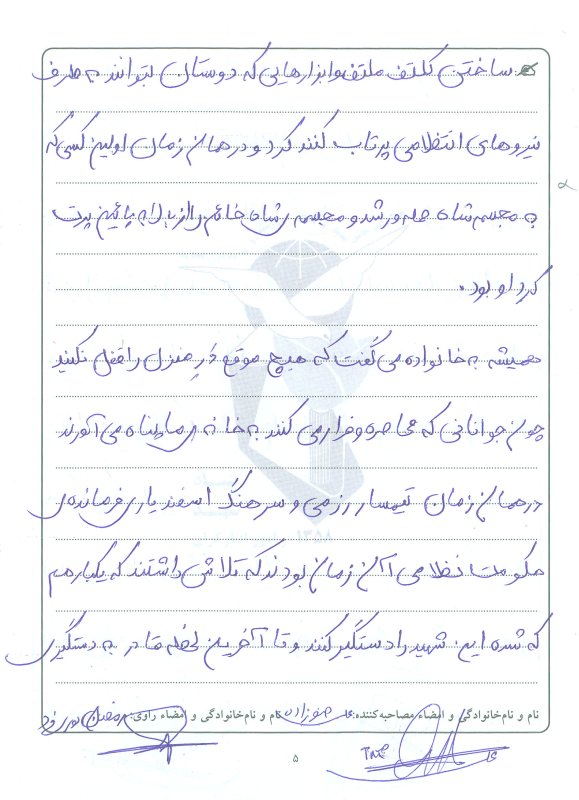 ساختن کلتف ملتف و ابزارهایی که دوستان بتوانند به طرف
نیروهای انتظامی پرتاب کنند کرد و در همان زمان اولین کسی که
به مجسمه شاه حمله ور شد و مجسمه رضا شاه خائم را از بالا به پائین پرت
کرد او بود.
همیشه به خانواده می گفت که هیچ موقع در منزل را قفل نکنید
چون جوانانی که محاصره و فرار می کنند به خانه ی ما پناه می آورند
در همان زمان تیمسار رزمی و سرهنگ اسفندیاری فرمانده ی
حکومت نظامی آن زمان بودند که تلاش داشتند که یکبار هم
که شده این شهید را دستگیر کنند و تا آخرین لحظه قادر به دستگیری
نام و نام‌خانوادگی و امضاء مصاحبه‌کننده: نام و نام‌خانوادگی و امضاء راوی:
۵
۱۳۸۸